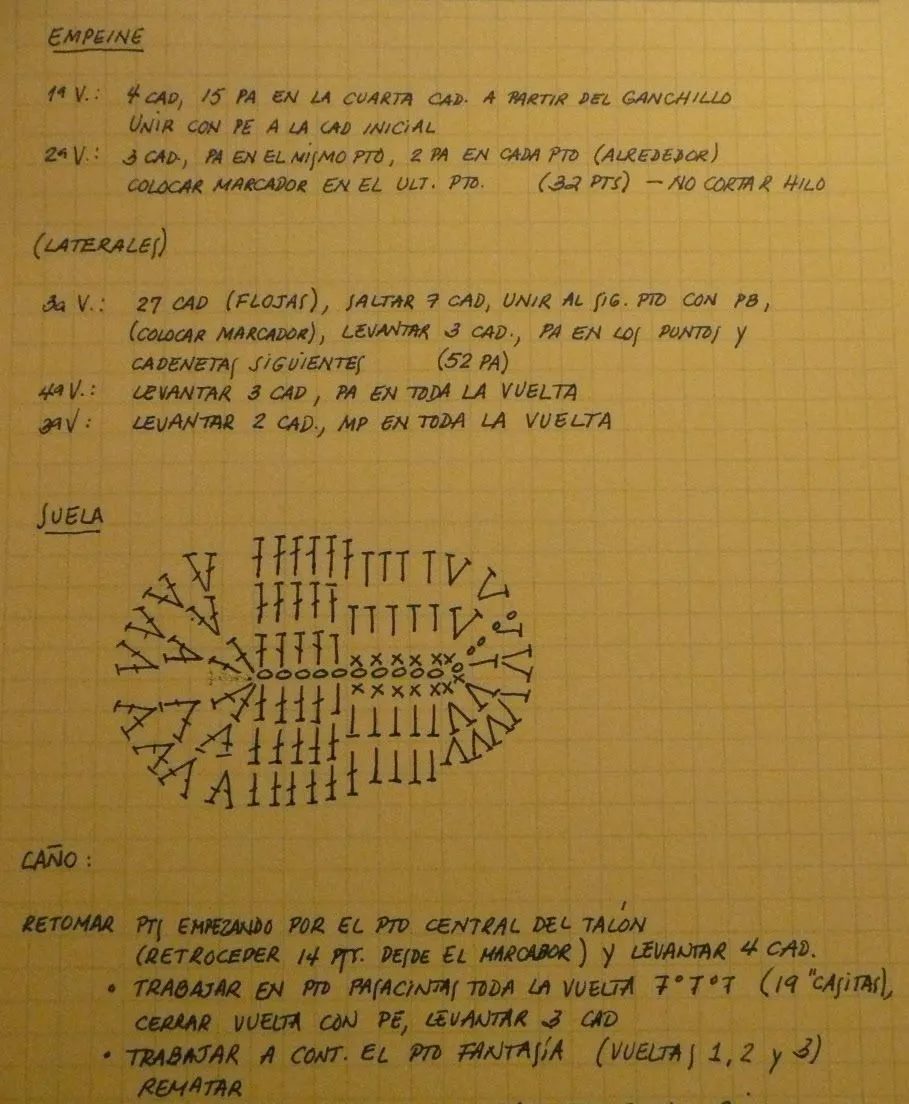 EMPEINE
1ª V.: 4 CAD, 15 PA EN LA CUARTA CAD. A PARTIR DEL GANCHILLO
UNIR CON PE A LA CAD INICIAL
2ª V.: 3 CAD., PA EN EL MISMO PTO, 2 PA EN CADA PTO (ALREDEDOR)
COLOCAR MARCADOR EN EL ULT. PTO. (32 PTS) – NO CORTAR HILO
(LATERALES)
3a V.: 27 CAD (FLOJAS), SALTAR 7 CAD, UNIR AL SIG. PTO CON PB,
(COLOCAR MARCADOR), LEVANTAR 3 CAD., PA EN LOS PUNTOS Y
CADENETAS SIGUIENTES (52 PA)
4ª V.: LEVANTAR 3 CAD, PA EN TODA LA VUELTA
3ª V: LEVANTAR 2 CAD., MP EN TODA LA VUELTA
SUELA
CAÑO:
RETOMAR PTS EMPEZANDO POR EL PTO CENTRAL DEL TALÓN
(RETROCEDER 14 PTS. DESDE EL MARCADOR) Y LEVANTAR 4 CAD.
• TRABAJAR EN PTO PASACINTAS TODA LA VUELTA T°T°T (19 "CASITAS),
CERRAR VUELTA CON PE, LEVANTAR 3 CAD
• TRABAJAR A CONT. EL PTO FANTASÍA (VUELTAS 1, 2 y 3)
REMATAR